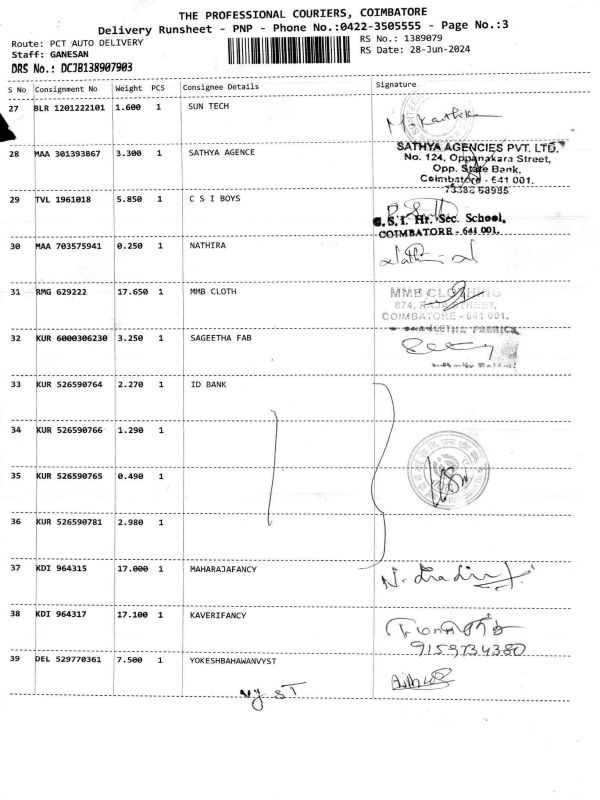 THE PROFESSIONAL COURIERS, COIMBATORE
Delivery Runsheet - PNP - Phone No.:0422-3505555 - Page No.:3
Route: PCT AUTO DELIVERY
RS No.: 1389079
Staff: GANESAN
RS Date: 28-Jun-2024
DRS No.: DCJB138907903
S No Consignment No Weight PCS Consignee Details Signature
27 BLR 1201222101 1.600 1 SUN TECH
M. Karthik
28 MAA 301393867 3.300 1 SATHYA AGENCE
SATHYA AGENCIES PVT. LTD.
No. 124, Oppanakara Street,
Opp. State Bank,
Coimbatore - 641 001.
73388 58985
29 TVL 1961018 5.850 1 C S I BOYS
C.S.I. Hr. Sec. School,
COIMBATORE - 641 001.
30 MAA 703575941 0.250 1 NATHIRA
31 RMG 629222 17.650 1 MMB CLOTH
MMB CLOTHING
874, RAJA STREET,
COIMBATORE - 641 001.
32 KUR 6000306230 3.250 1 SAGEETHA FAB
33 KUR 526590764 2.270 1 ID BANK
34 KUR 526590766 1.290 1
35 KUR 526590765 0.490 1
36 KUR 526590781 2.980 1
37 KDI 964315 17.000 1 MAHARAJAFANCY
38 KDI 964317 17.100 1 KAVERIFANCY
9159734380
39 DEL 529770361 7.500 1 YOKESHBAHAWANVYST
vy ST